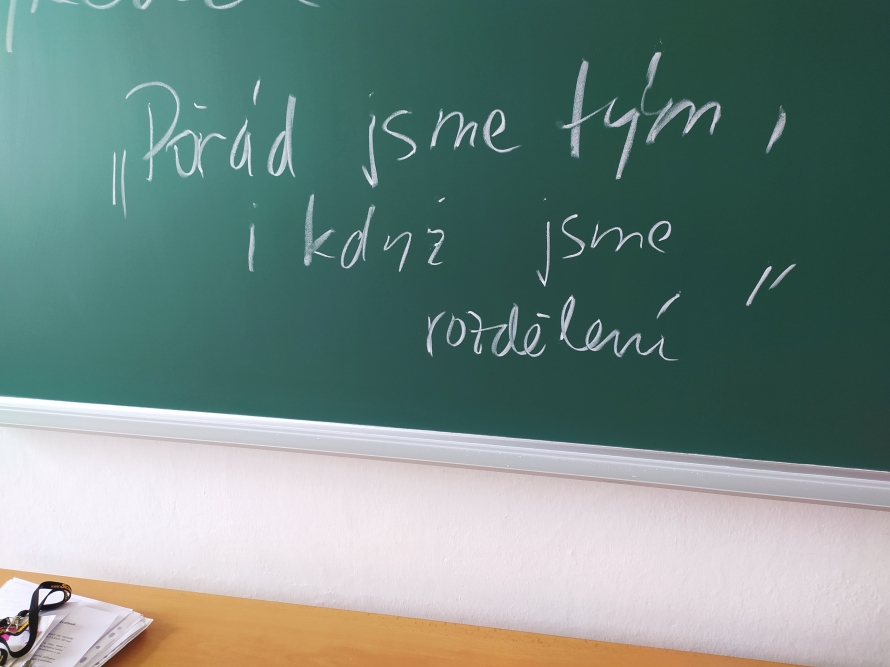 „Pořád jsme tým,
i když jsme
rozdělení"